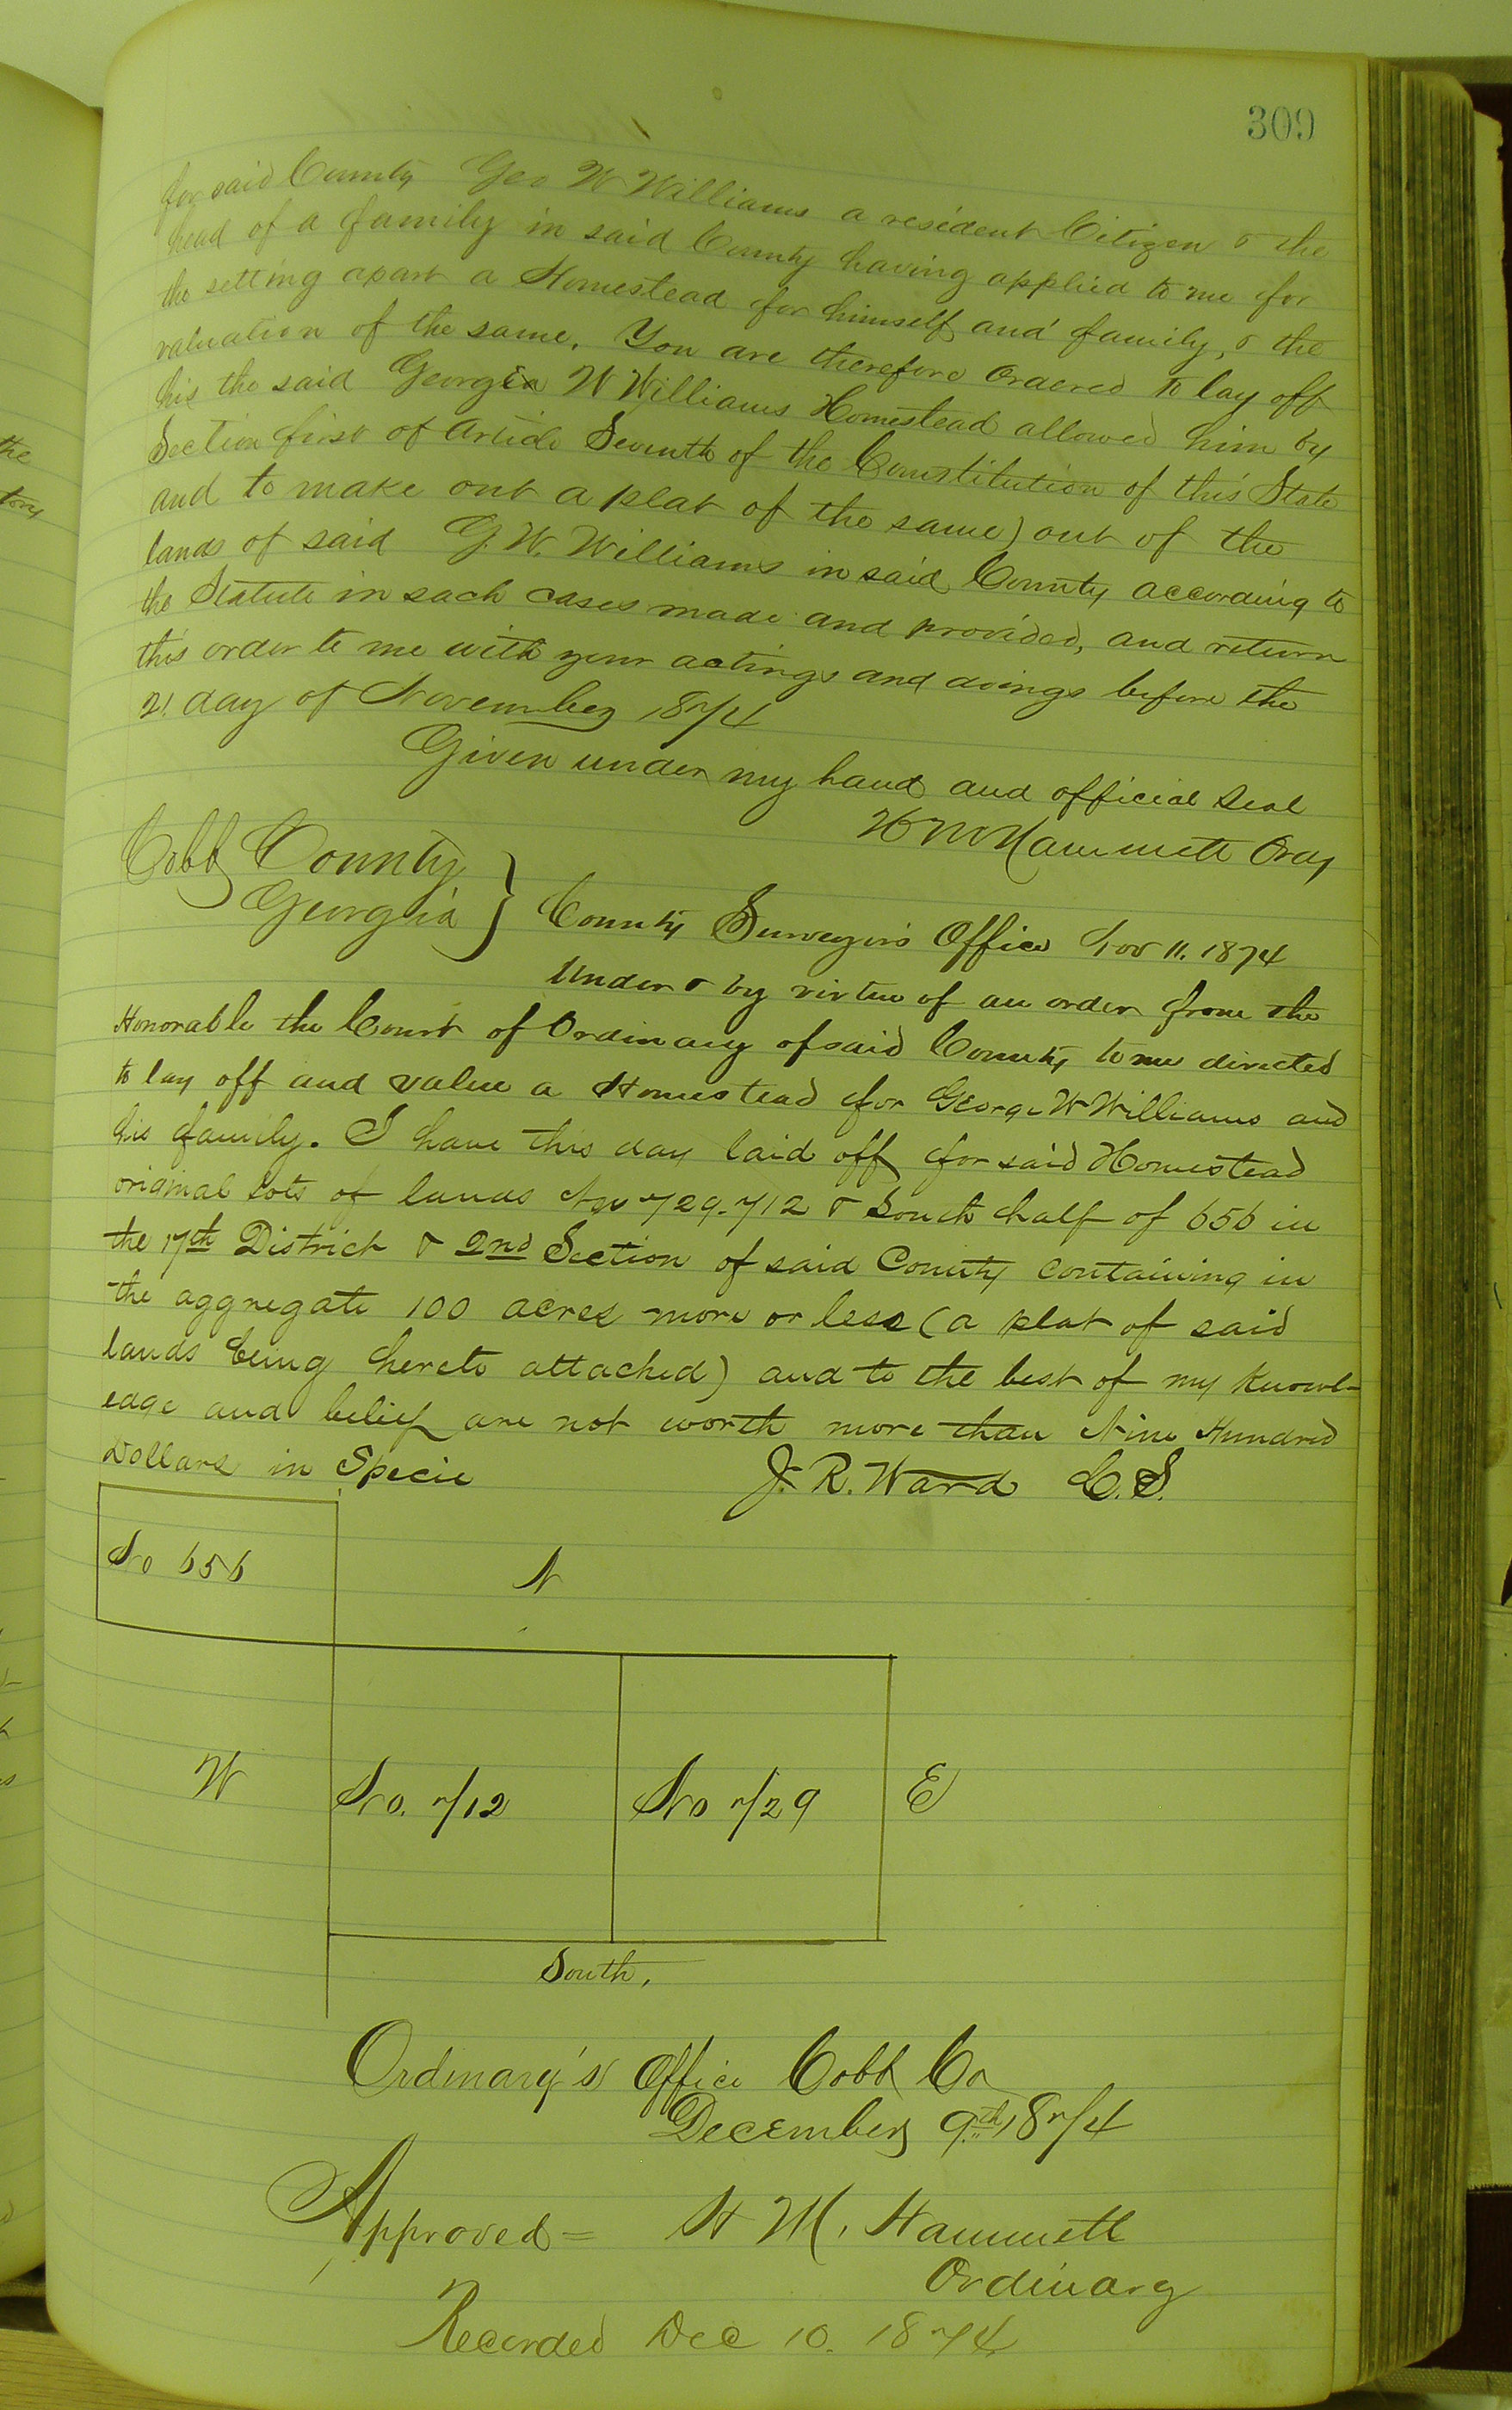 309
for said County Geo W Williams a resident Citizen & the
head of a family in said County having applied to me for
the setting apart a Homestead for himself and family, & the
valuation of the same. You are therefore ordered to lay off
his the said George W Williams Homestead allowed him by
Section first of Article Seventh of the Constitution of this State
and to make out a plat of the same) out of the
lands of said G. W. Williams in said County according to
the Statute in such cases made and provided, and return
this order to me with your actings and doings before the
21. day of November 1874
Given under my hand and official Seal
H M Hammett Ordy
Cobb County
Georgia } County Surveyor's Office Nov 11. 1874
Under & by virtue of an order from the
Honorable the Court of Ordinary of said County to me directed
to lay off and value a Homestead for George W Williams and
his family. I have this day laid off for said Homestead
original lots of lands Nos 729. 712 & South half of 656 in
the 17th District & 2nd Section of said County containing in
the aggregate 100 acres more or less (a plat of said
lands being hereto attached) and to the best of my knowl-
edge and belief are not worth more than Nine Hundred
Dollars in Specie J. R. Ward C. S.
No 656
N
W No. 712 No 729 E
South.
Ordinary's Office Cobb Co
December 9th 1874
Approved = H M. Hammett
Ordinary
Recorded Dec 10. 1874
the